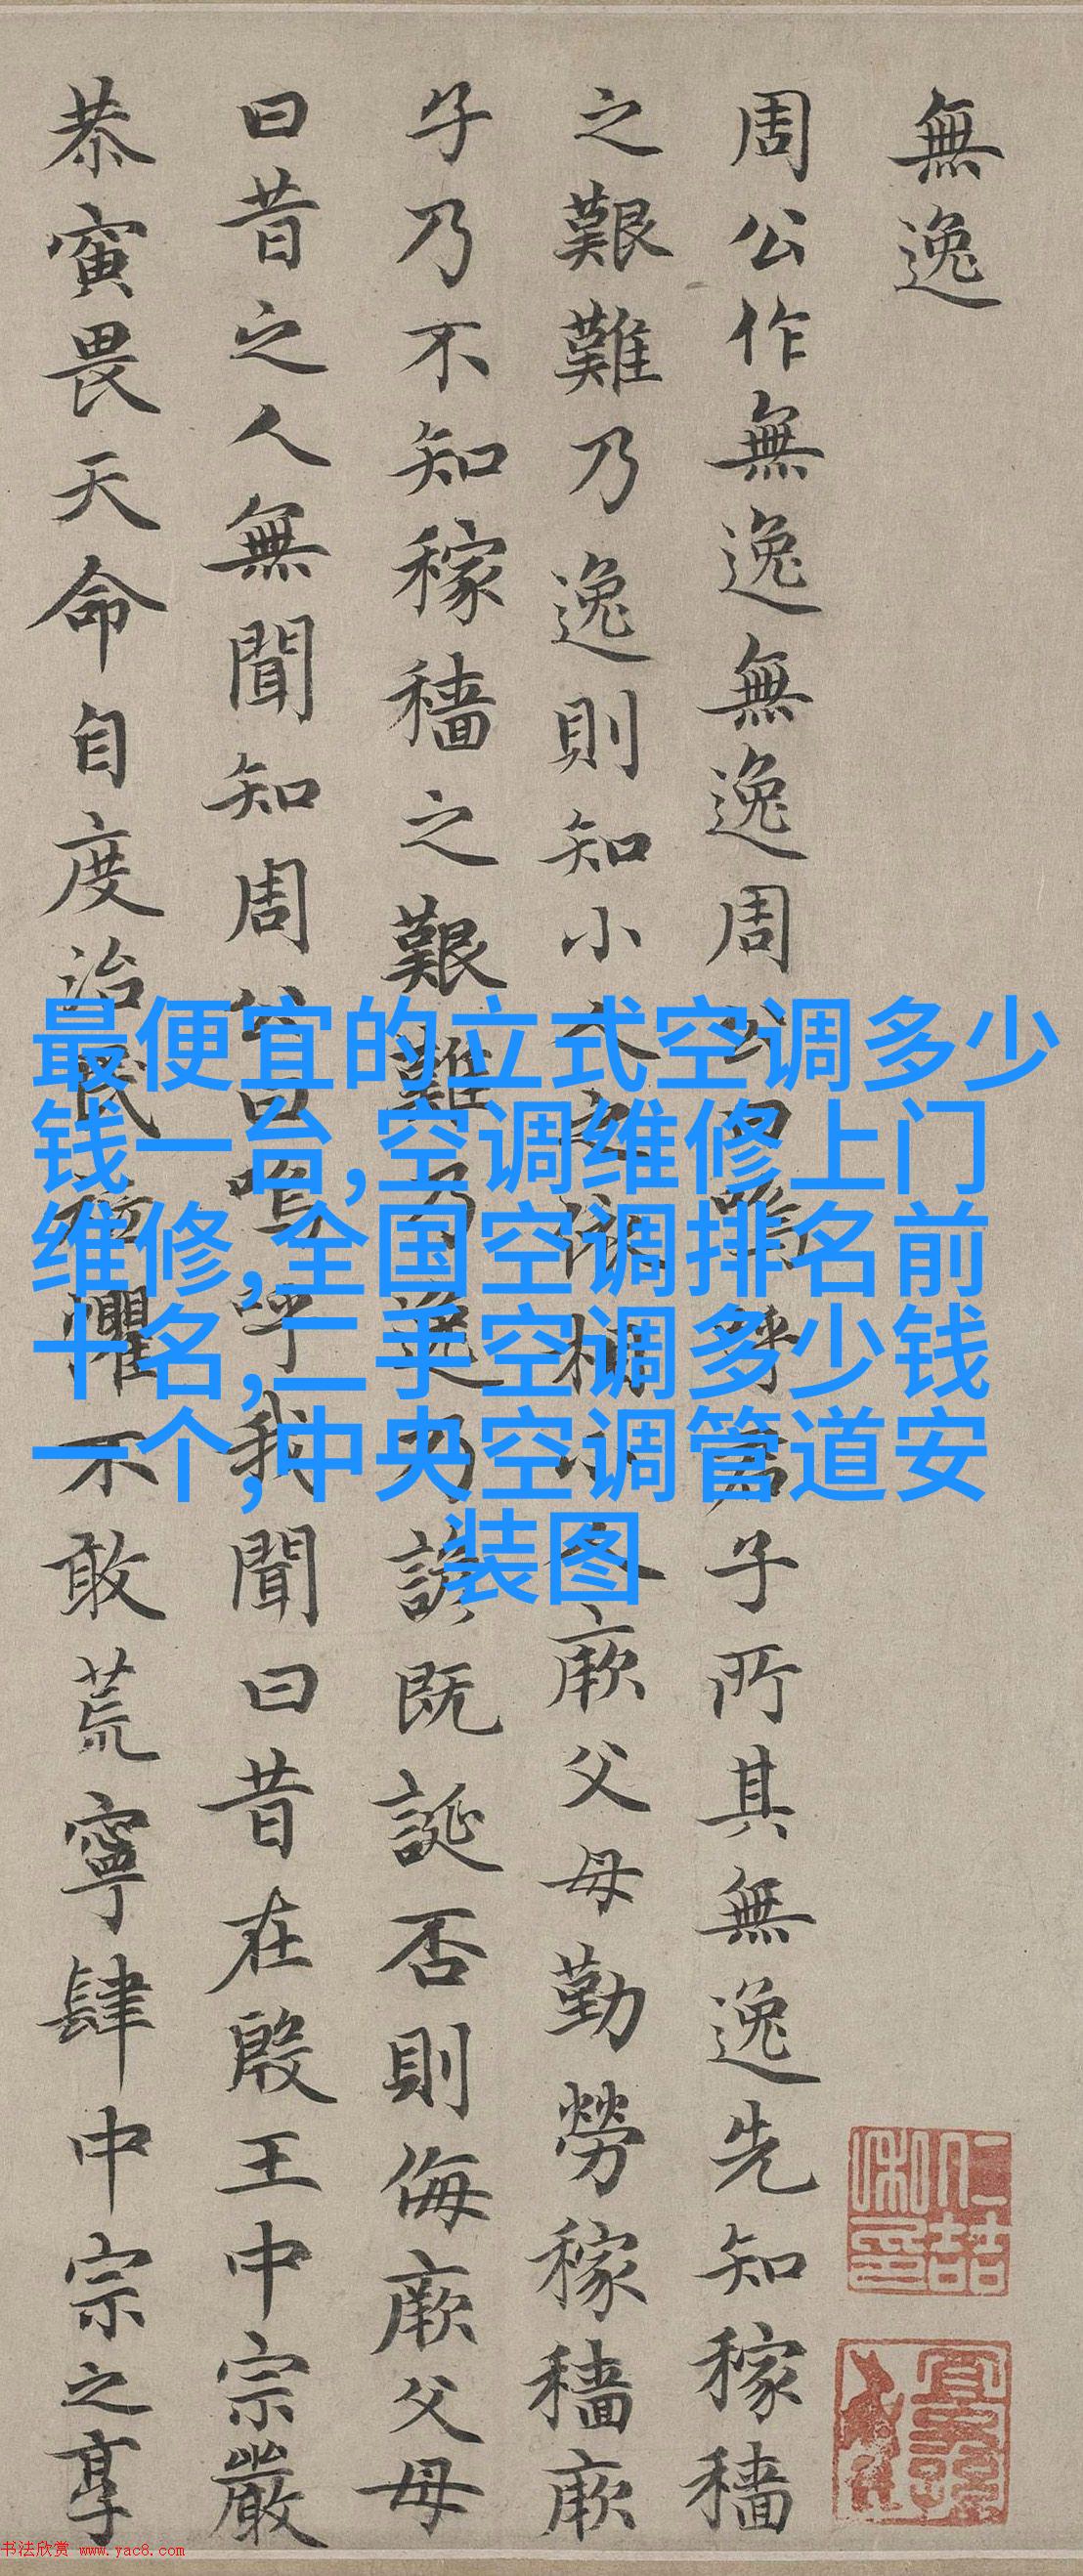 無逸
周公作無逸無逸周公曰嗚呼君子所其無逸先知稼穡
之艱難乃逸則知小人之依相小人厥父母勤勞稼穡厥
子乃不知稼穡之艱難乃逸乃諺既誕否則侮厥父母
曰昔之人無聞知周公曰嗚呼我聞曰昔在殷王中宗嚴
恭寅畏天命自度治民祗懼不敢荒寧肆中宗之享
最便宜的立式空调多少
钱一台,空调维修上门
维修,全国空调排名前
十名,二手空调多少钱
一个,中央空调管道安
装图
书法欣赏 www.yac8.com